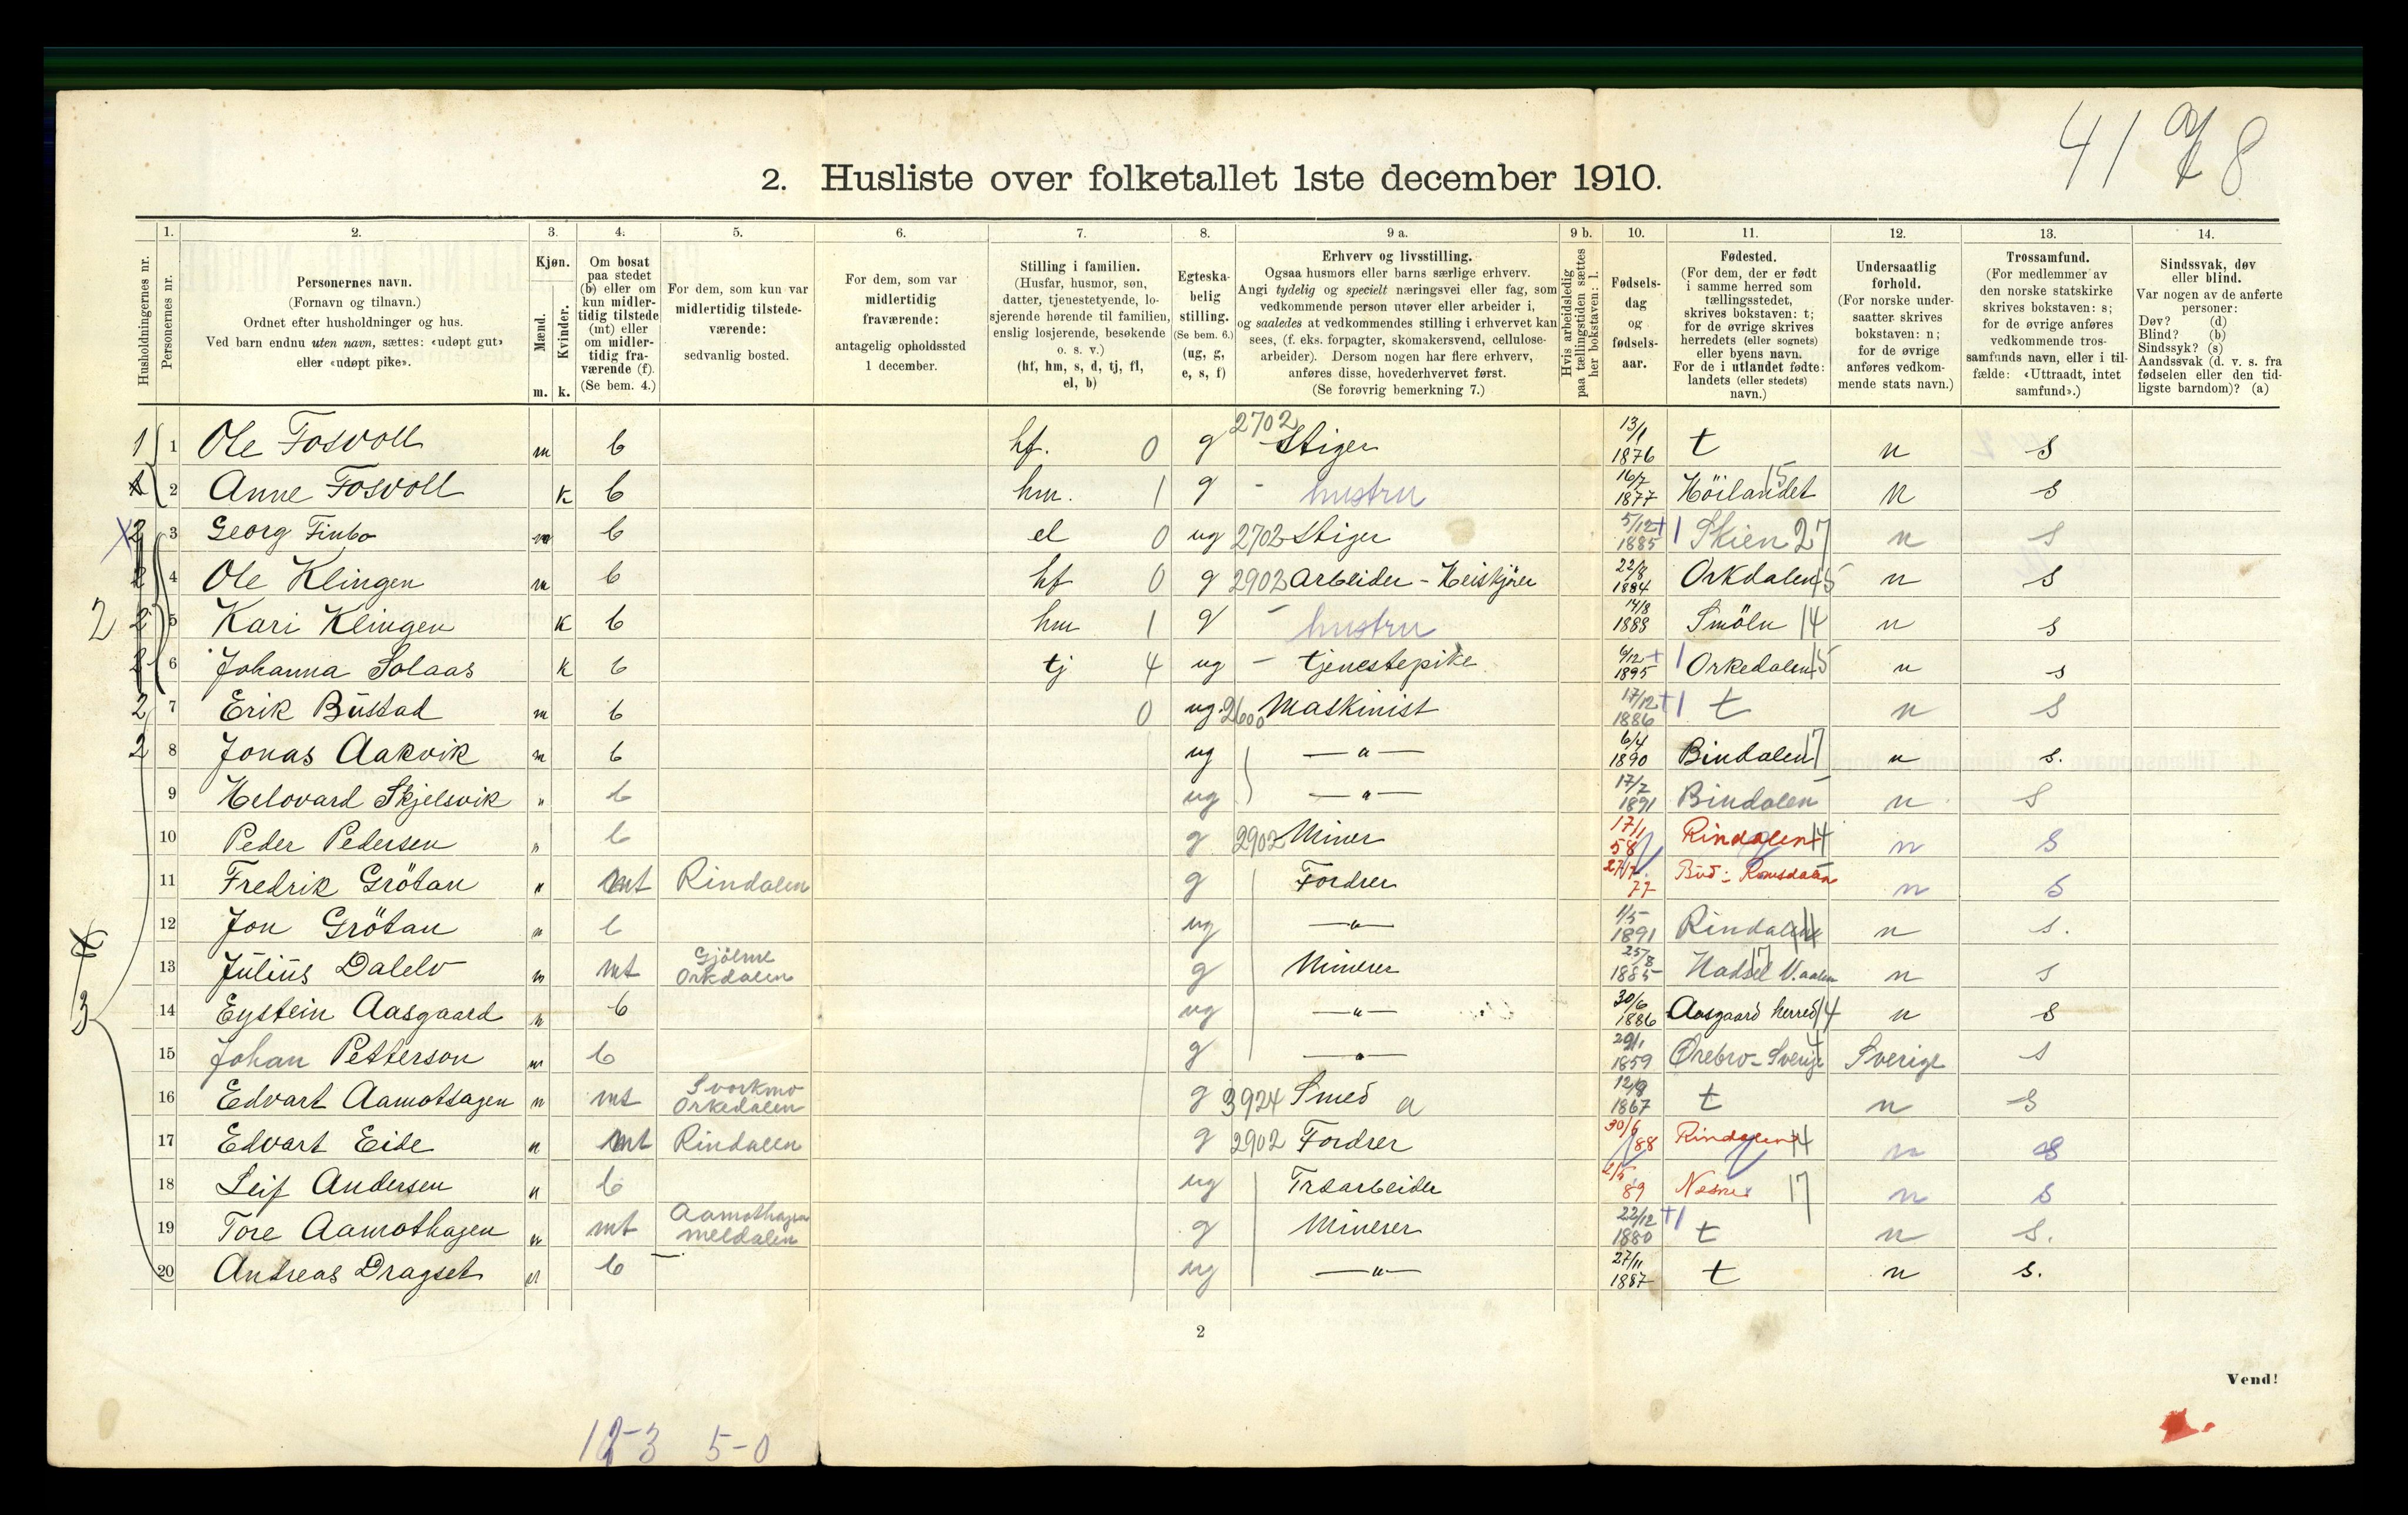 41 78
2. Husliste over folketallet 1ste december 1910.
Husholdningernes nr.
1. Personernes nr.
2. Personernes navn. (Fornavn og tilnavn.) Ordnet efter husholdninger og hus. Ved barn endnu uten navn, sættes: «udøpt gut» eller «udøpt pike».
3. Kjøn. Mænd. m. Kvinder. k.
4. Om bosat paa stedet (b) eller om kun midlertidig tilstede (mt) eller om midlertidig fraværende (f). (Se bem. 4.)
5. For dem, som kun var midlertidig tilstedeværende: sedvanlig bosted.
6. For dem, som var midlertidig fraværende: antagelig opholdssted 1 december.
7. Stilling i familien. (Husfar, husmor, søn, datter, tjenestetyende, losjerende hørende til familien, enslig losjerende, besøkende o. s. v.) (hf, hm, s, d, tj, fl, el, b)
8. Egteskabelig stilling. (Se bem. 6.) (ug, g, e, s, f)
9 a. Erhverv og livsstilling. Ogsaa husmors eller barns særlige erhverv. Angi tydelig og specielt næringsvei eller fag, som vedkommende person utøver eller arbeider i, og saaledes at vedkommendes stilling i erhvervet kan sees, (f. eks. forpagter, skomakersvend, cellulosearbeider). Dersom nogen har flere erhverv, anføres disse, hovederhvervet først. (Se forøvrig bemerkning 7.)
9 b. Hvis arbeidsledig paa tællingstiden sættes her bokstaven: l.
10. Fødselsdag og fødselsaar.
11. Fødested. (For dem, der er født i samme herred som tællingsstedet, skrives bokstaven: t; for de øvrige skrives herredets (eller sognets) eller byens navn. For de i utlandet fødte: landets (eller stedets) navn.)
12. Undersaatlig forhold. (For norske undersaatter skrives bokstaven: n; for de øvrige anføres vedkommende stats navn.)
13. Trossamfund. (For medlemmer av den norske statskirke skrives bokstaven: s; for de øvrige anføres vedkommende trossamfunds navn, eller i tilfælde: «Uttraadt, intet samfund».)
14. Sindssvak, døv eller blind. Var nogen av de anførte personer: Døv? (d) Blind? (b) Sindssyk? (s) Aandssvak (d. v. s. fra fødselen eller den tidligste barndom)? (a)
1 1 Ole Fosvoll m b hf. 0 g 2702 Stiger 13/1 1876 t n s
2 Anne Fosvoll k b hm. 1 g - hustru 16/7 1877 Höilandet 15 n s
2 3 Georg Finbo m b el 0 ug 2702 Stiger 5/12 1885 Skien 27 n s
4 Ole Klingen m b hf 0 g 2902 Arbeider - Heiskjörer 22/8 1884 Orkdalen 15 n s
2 5 Kari Klingen k b hm 1 g - hustru 14/8 1888 Smöln 14 n s
6 Johanna Solaas k b tj 4 ug - tjenestepike 6/12 1895 Orkedalen 15 n s
2 7 Erik Bustad m b 0 ug 2600 Maskinist 17/12 1886 t n s
2 8 Jonas Aakvik m b ug — " — 6/4 1890 Bindalen 17 n s.
9 Helovard Skjelsvik " b ug — " — 17/7 1891 Bindalen n s
10 Peder Pedersen " b g 2902 Miner 17/1 58 Rindalen 14 n s
11 Fredrik Grötan " mt Rindalen g Fordrer 77 Bud - Romsdalen n s
12 Jon Grötan " b ug — " — 1/5 1891 Rindalen 14 n s.
13 Julius Dalelv m mt Gjölme Orkdalen g Minerer 25/8 1885 Hadsel V.aalen 17 n s
14 Eystein Aasgaard " b ug — " — 30/6 1886 Aasgaard herred 14 n s
15 Johan Petterson m b g — " — 29/1 1859 Örebro - Sverige Sverige s
16 Edvart Aamotsagen " mt Svorkmo Orkedalen g 3924 Smed a 12/9 1867 t n s
17 Edvart Eide " mt Rindalen g 2902 Fordrer 30/6 88 Rindalen 14 n s
18 Leif Andersen " b ug Træarbeider 2/5 89 Nesne 17 n s
19 Tore Aamothagen " mt Aamothagen Meldalen g Minerer 22/12 1880 t n s.
20 Andreas Dragset " b ug — " — 27/11 1887 t n s.
3
2
Vend!
5-0